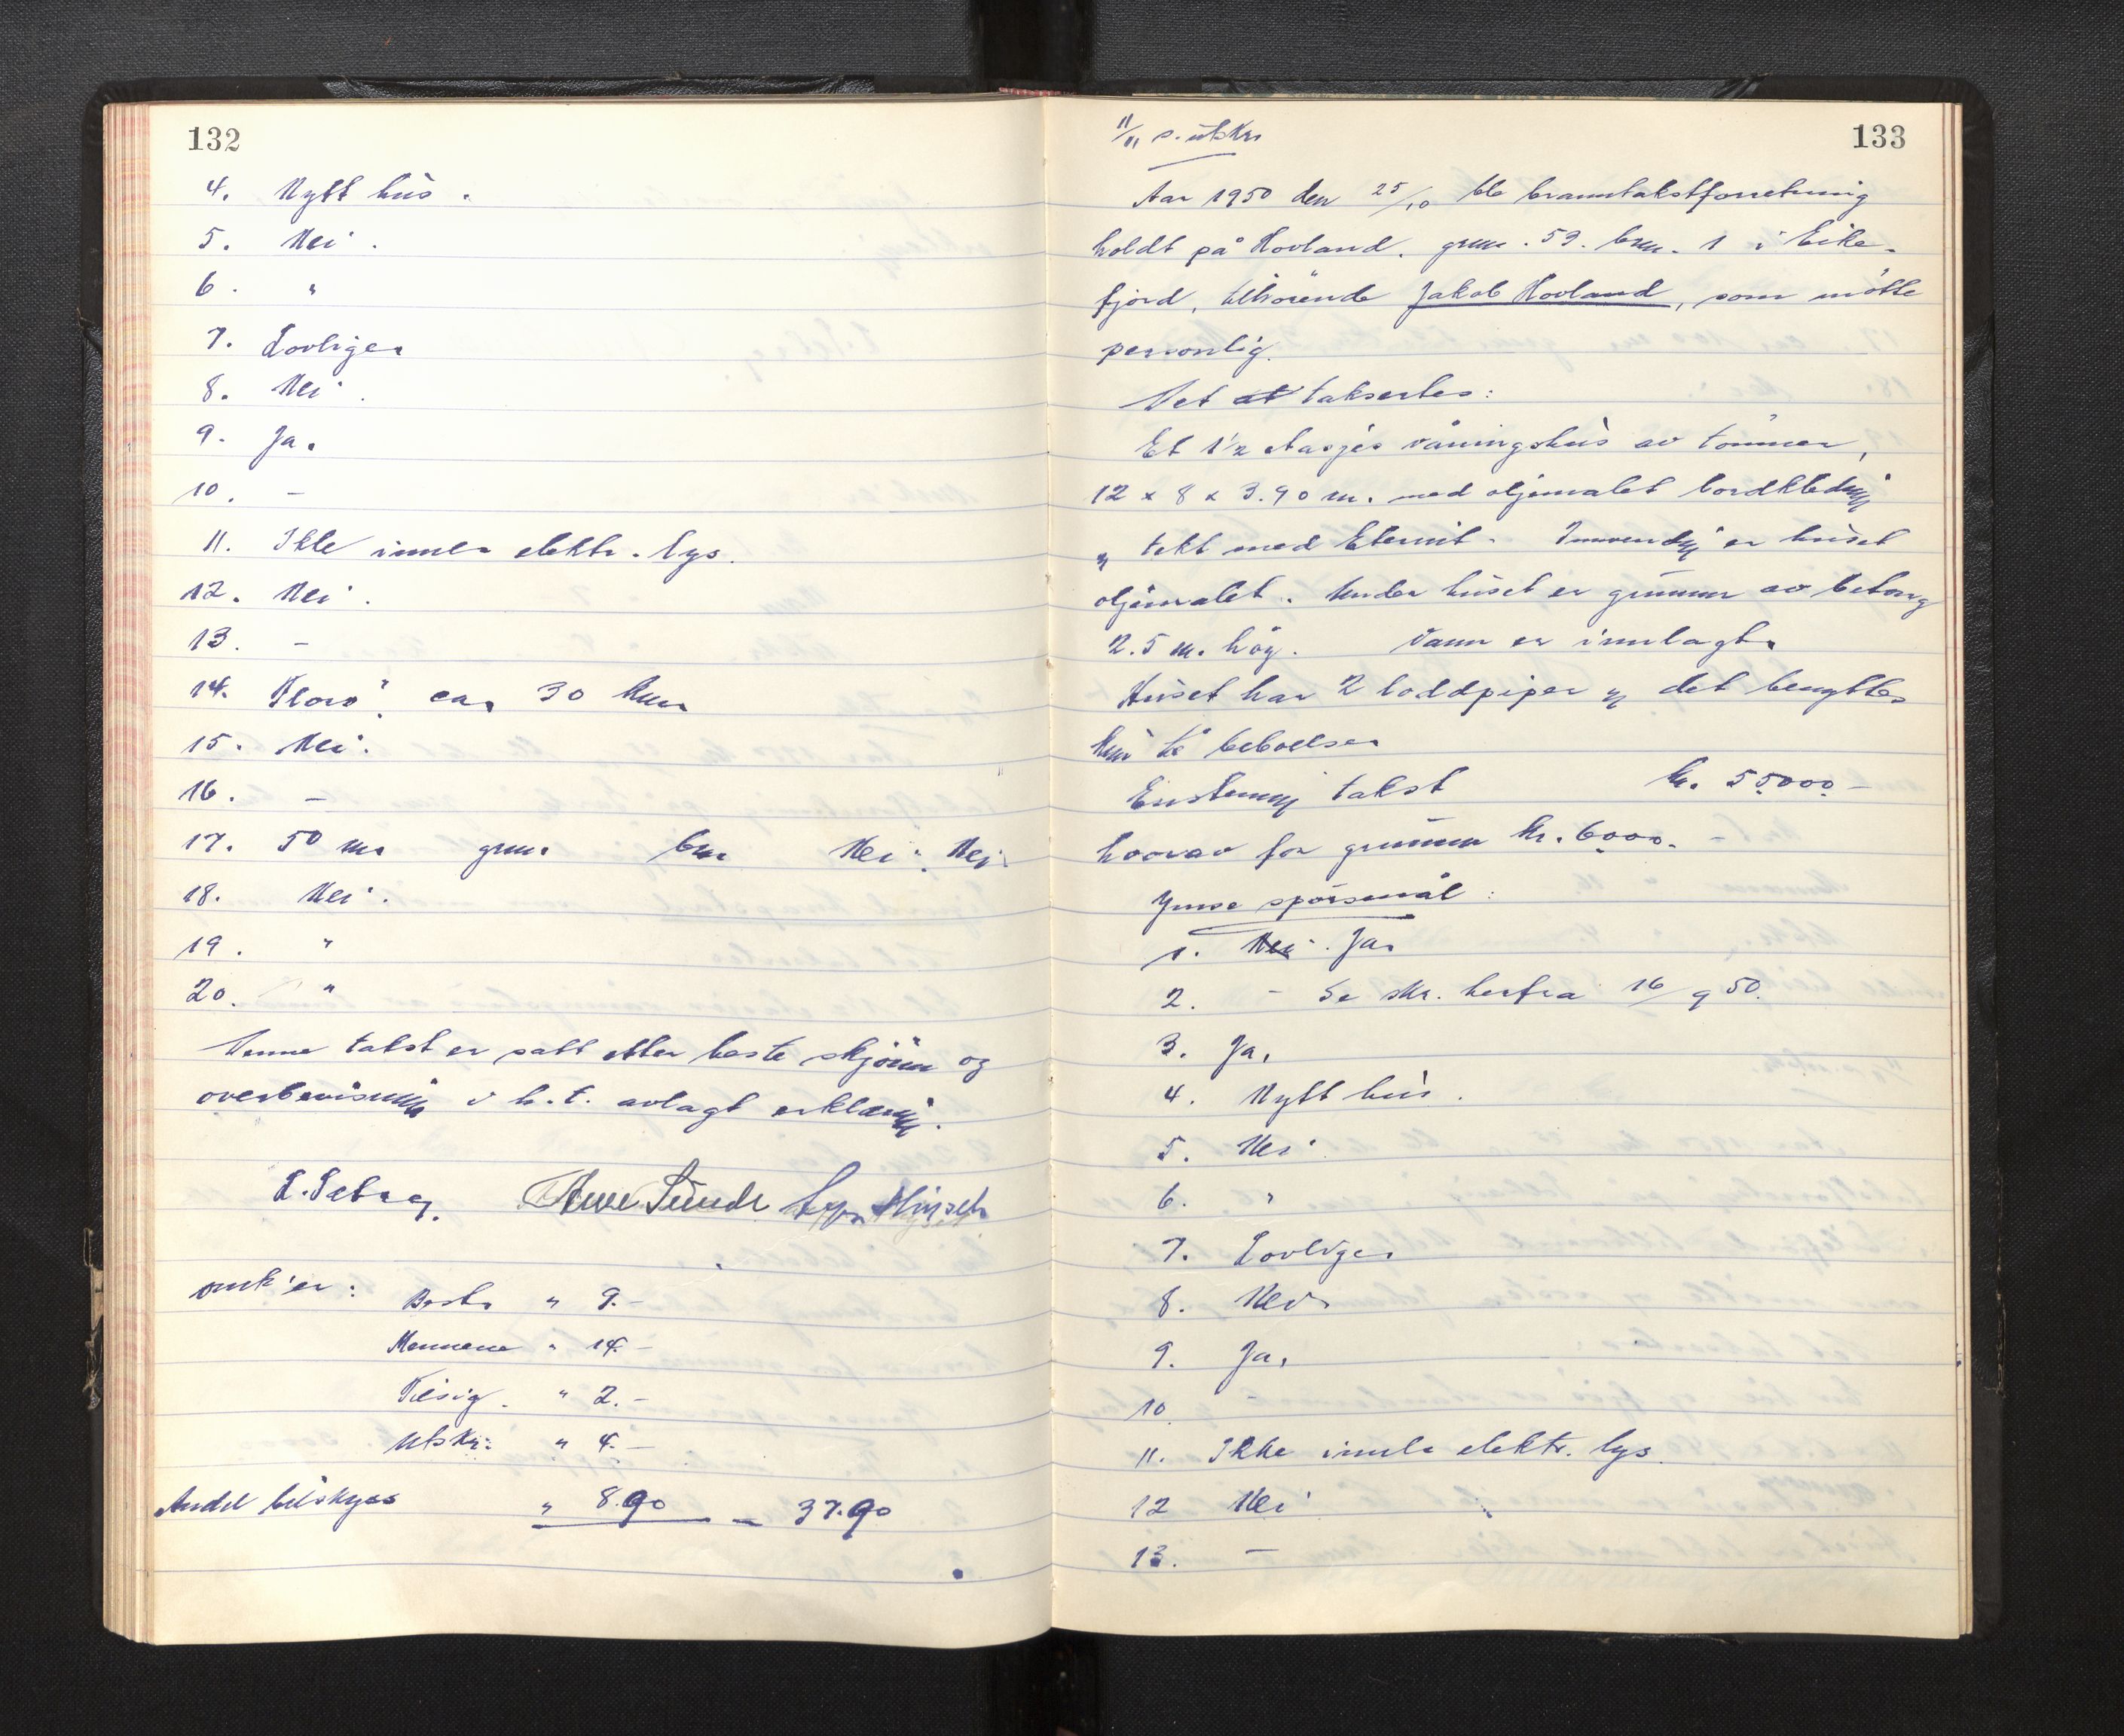 132
4. Nytt hus.
5. Nei.
6. "
7. Lovliger
8. Nei.
9. Ja.
10. -
11. Ikke innla elektr. lys.
12. Nei.
13. -
14. Florö, ca. 30 km
15. Nei.
16. -
17. 50 m. gnr. bnr. Nei. Nei.
18. Nei.
19. "
20. "
Denne takst er satt etter beste skjönn og
overbevisning i h.t. avlagt erklæring.
L. Sebag. Arve Sunde
omk'er:
Bests " 9.-
Mennene " 14.-
Tilsig. " 2.-
Utskr: " 4.-
Andel bilskyss " 8.90 - 37.90
133
11/11 s. utskr
Aar 1950 den 25/10 ble branntakstforretning
holdt på Hovland. gnr. 59. bnr. 1 i Eike-
fjord, tilhörende Jakob Hovland, som mötte
personlig.
Det at taksertes:
Et 1½ etasjes våningshus av tömmer,
12 x 8 x 3.90 m. med oljemalet bordkledning
og tekt med Eternit. Innvendig er huset
oljemalet. Under huset er grunnmur av betong
2.5 m. höy. Vann er innlagt.
Huset har 2 loddpiper og det benyttes
kun til beboelse
Enstemmig takst kr. 55000.-
hvorav for grunnmur kr. 6000.-
Ymse spörsmål:
1. Nei. Ja.
2. - Se skr. herfra 16/9 50.
3. Ja.
4. Nytt hus.
5. Nei.
6. "
7. Lovliger
8. Nei.
9. Ja.
10. -
11. Ikke innla elektr. lys.
12 Nei
13. -